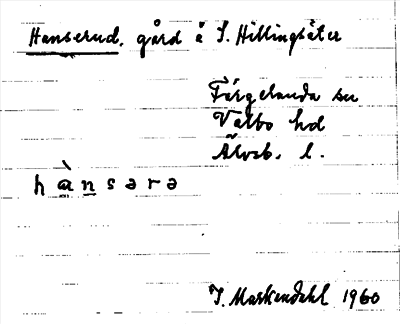 Hanserud, gård å S. Hillingsäter
Färgelanda sn
Valbo hd
Älvsb. l.
hànsərə
I. Markendahl 1960